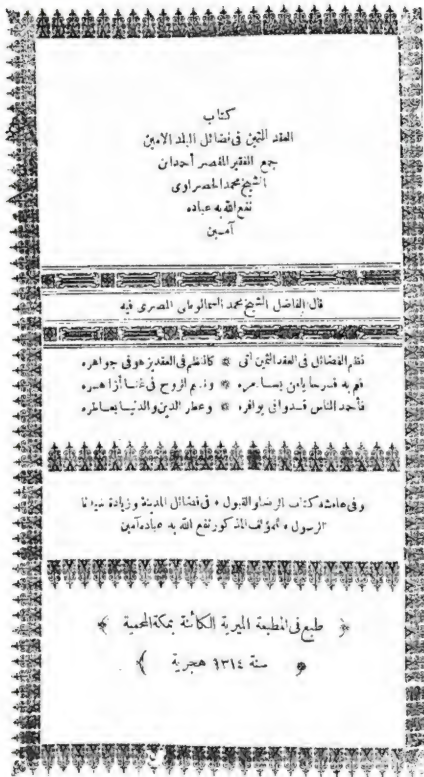 كتاب
العقد الثمين فى فضائل البلد الامين
جمع الفقير المقصر أحمد ابن
الشيخ محمد الحضراوى
نفع الله به عباده
آمين
قال الفاضل الشيخ محمد السمالوطى المصرى فيه
نظم الفضائل فى العقد الثمين أتى * كالنظم فى العقد يزهو فى جواهره
فم به فرحا يامن يسامره * ونعم الروح فى غنا أزاهره
فأحمد الناس قد وافى بوافره * وعطر الدين والدنيا بعاطره
وفى هامشه كتاب الرضا والقبول * فى فضائل المدينة وزيادة سيدنا
الرسول * لمؤلف المذكور نفع الله به عباده آمين
﴿ طبع فى المطبعة الميرية الكائنة بمكة المحمية ﴾
﴿ سنة ١٣١٤ هجرية ﴾